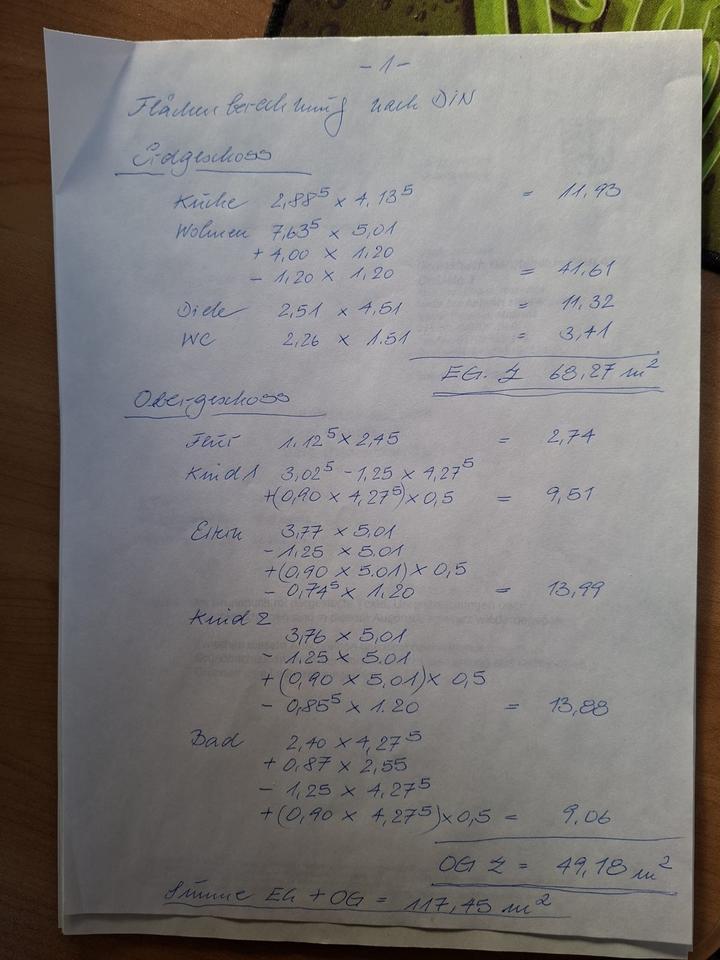 - 1 -
Flächenberechnung nach DiN
Erdgeschoss
Küche 2,88⁵ x 4.13⁵ = 11,93
Wohnen 7,63⁵ x 5,01
+ 4,00 x 1.20
- 1,20 x 1,20 = 41,61
Diele 2,51 x 4,51 = 11,32
WC 2,26 x 1.51 = 3,41
EG. Σ 68,27 m²
Obergeschoss
Flur 1.12⁵ x 2,45 = 2,74
Kind 1 3,02⁵ - 1,25 x 4,27⁵
+(0,90 x 4,27⁵) x 0,5 = 9,51
Eltern 3,77 x 5.01
- 1.25 x 5.01
+(0,90 x 5.01) x 0,5
- 0,74⁵ x 1.20 = 13,99
Kind 2
3,76 x 5,01
- 1.25 x 5.01
+(0,90 x 5,01) x 0,5
- 0,85⁵ x 1.20 = 13,88
Bad 2,40 x 4,27⁵
+ 0,87 x 2,55
- 1,25 x 4,27⁵
+(0,90 x 4,27⁵) x 0,5 = 9.06
OG Σ = 49,18 m²
Summe EG + OG = 117,45 m²